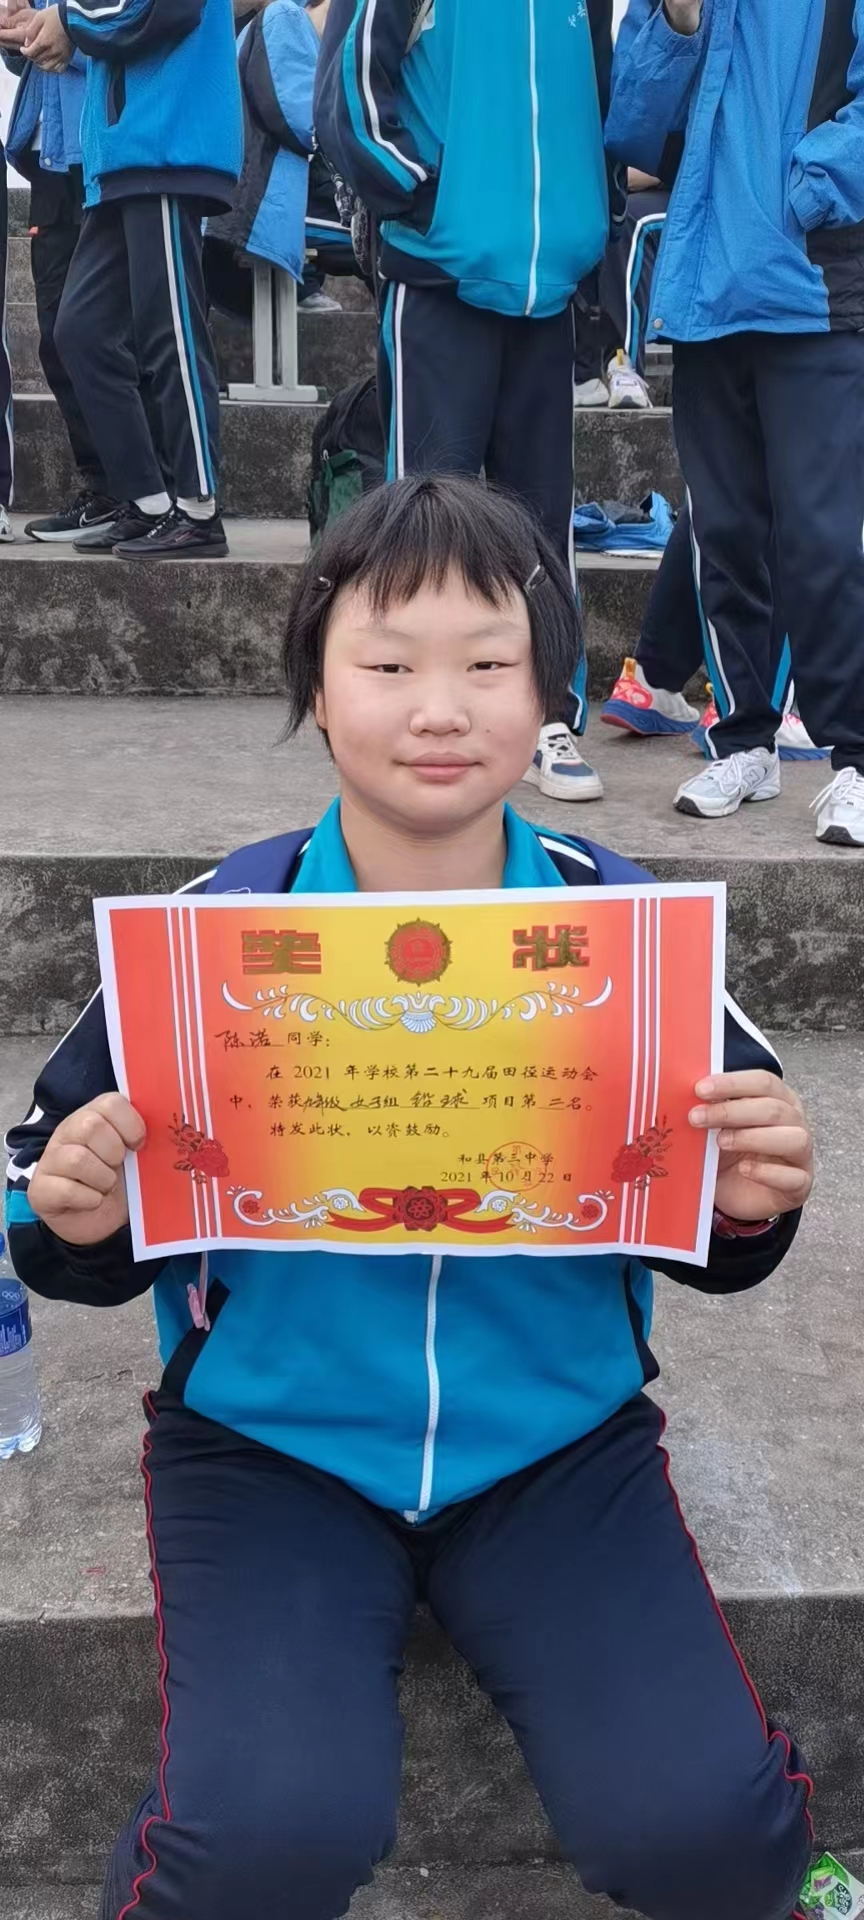 奖状
陈诺 同学:
在 2021 年学校第二十九届田径运动会
中，荣获九年级女子组 铅球 项目第二名。
特发此状，以资鼓励。
和县第三中学
2021 年 10 月 22 日